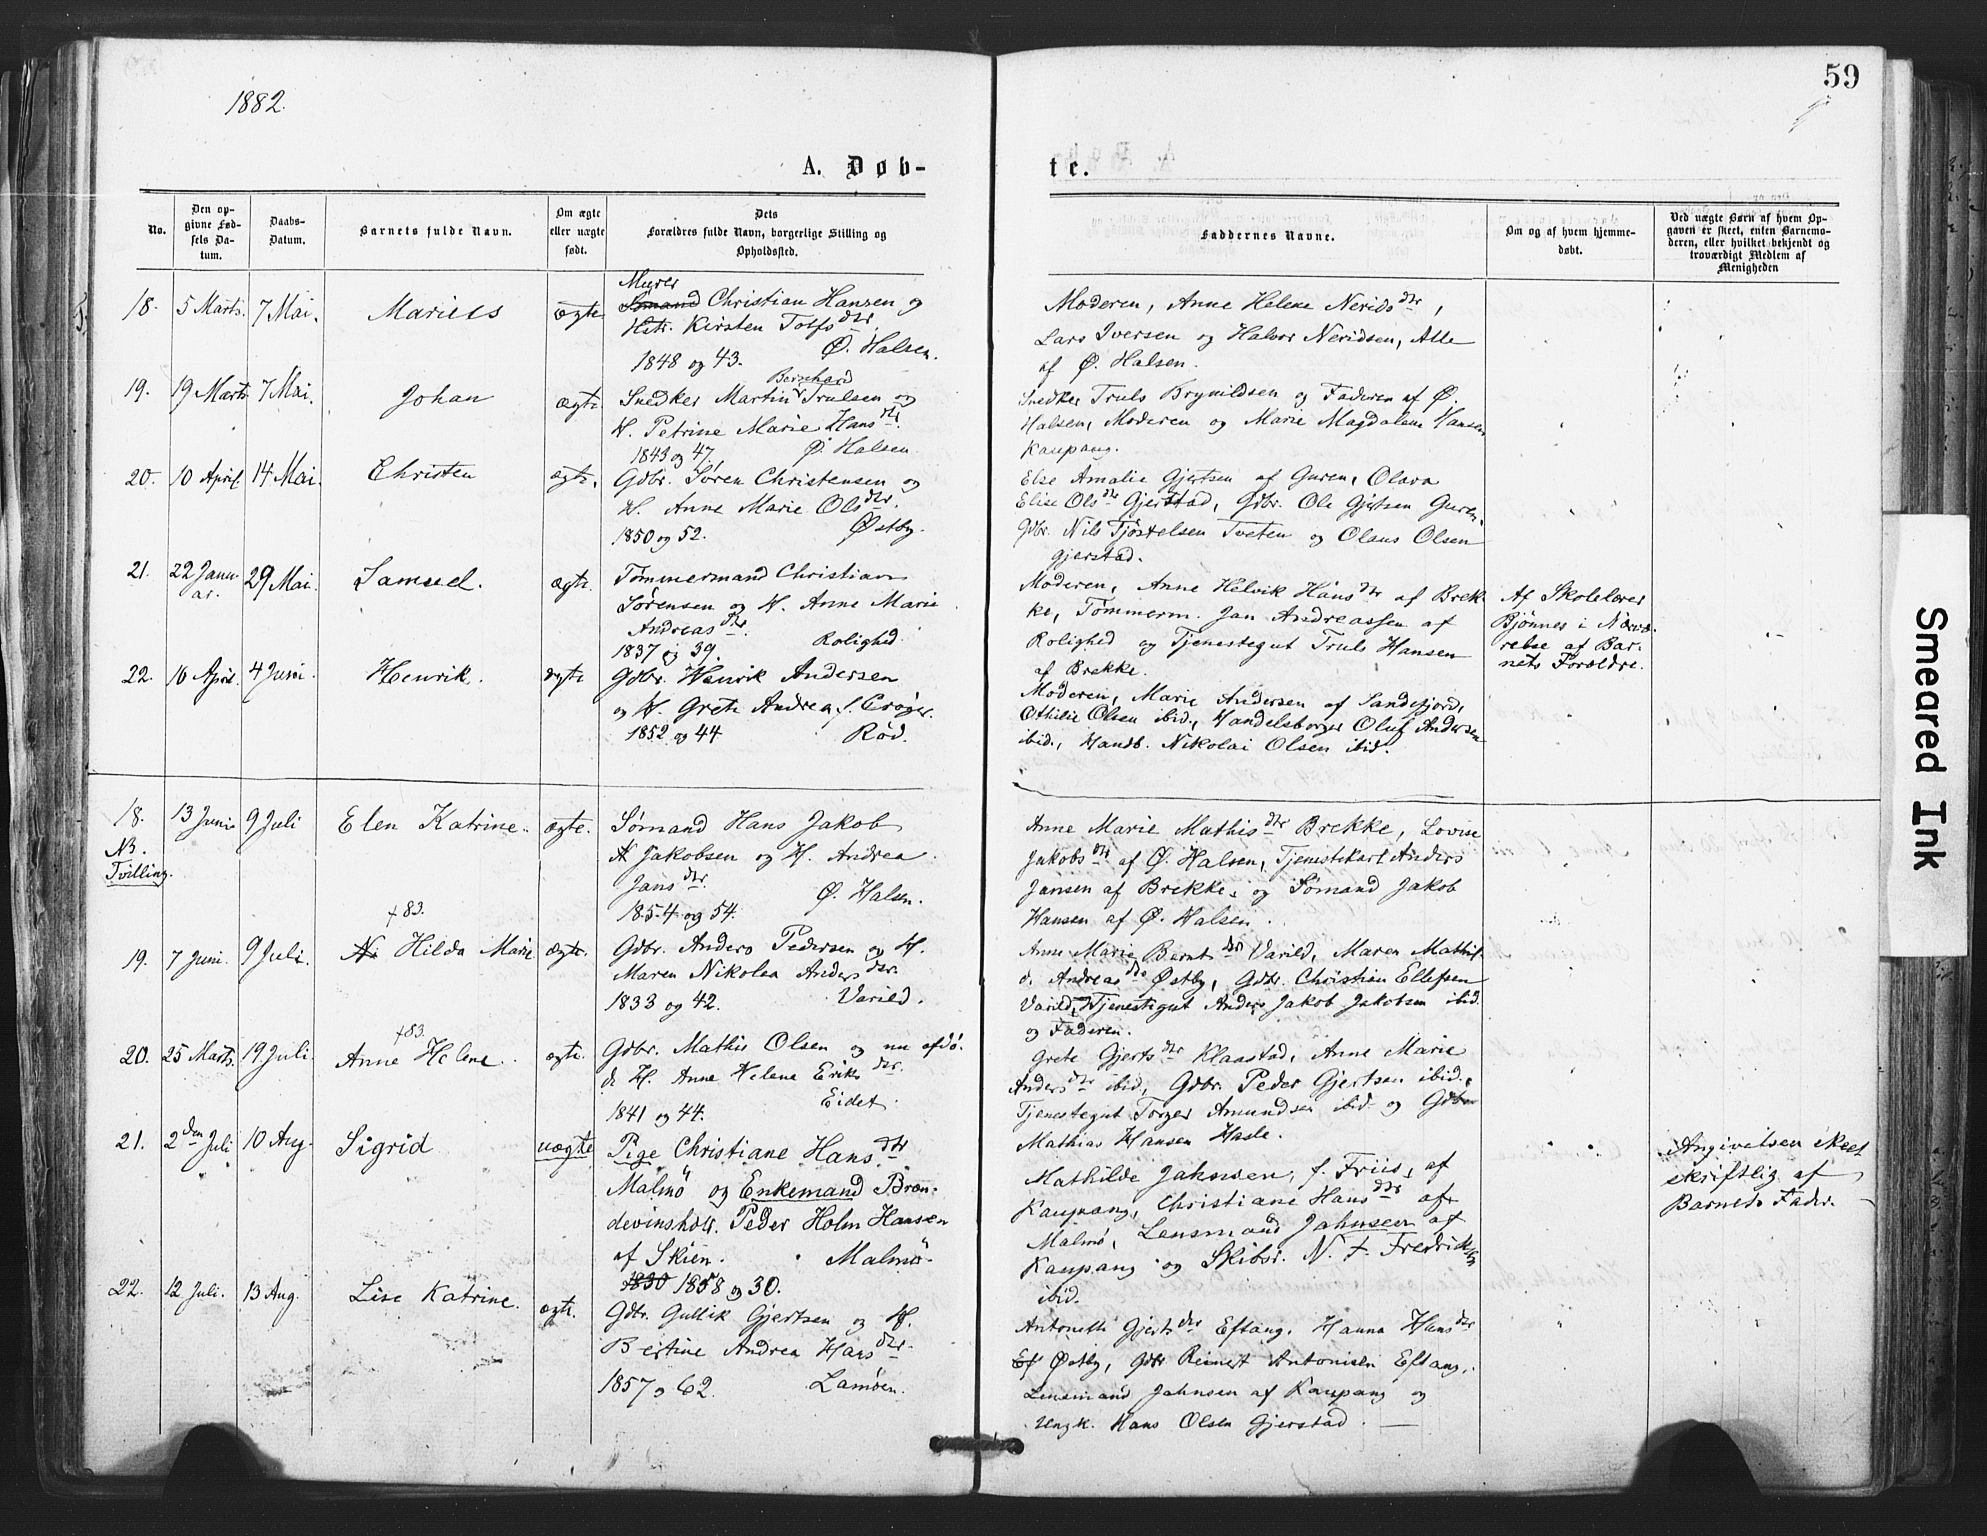 59
1882.
A. Døb-
te.
No.
Den op-
givne Fød-
sels Da-
tum.
Daabs-
Datum.
Barnets fulde Navn.
Om ægte
eller uægte
født.
Dets
Forældres fulde Navn, borgerlige Stilling og
Opholdssted.
Faddernes Navne.
Om og af hvem hjemme-
døbt.
Ved uægte Børn af hvem Op-
gaven er skeet, enten Barnemo-
deren, eller hvilket bekjendt og
troværdigt Medlem af
Menigheden
18. 5 Marts. 7 Mai. Marius ægte
Murer
Sømand Christian Hansen og
Hstr. Kirsten Tolfsdtr.
1848 og 43. Ø. Halsen.
Moderen, Anne Helene Neridsdtr,
Lars Iversen og Halvor Neridsen, Alle
af Ø. Halsen.
19. 19 Marts 7 Mai. Johan ægte
Bernhard
Snedker Martin Trulsen og
H. Petrine Marie Hansdtr.
1843 og 47. Ø. Halsen.
Snedker Truls Brynildsen og Faderen af Ø.
Halsen, Moderen og Marie Magdalene Hansen
Kaupang.
20. 10 April 14 Mai. Christen ægte.
Gdbr. Søren Christensen og
H. Anne Marie Olsdtr.
1850 og 52. Østby.
Else Amalie Gjertsen af Guren, Olava
Elise Olsdtr Gjerstad, Gdbr. Ole Gjertsen Guren.
Gdbr. Nils Tjøstelsen Tveten og Olaus Olsen
Gjerstad.
21. 22 Janu-
ar. 29 Mai. Samuel. ægte.
Tømmermand Christian
Sørensen og H. Anne Marie
Andreasdtr.
1837 og 39. Rolighed.
Moderen, Anne Helvik Hansdtr af Brek-
ke, Tømmerm. Jan Andreassen af
Rolighed og Tjenestegut Truls Hansen
af Brekke.
Af Skolelærer
Bjønnes i Nærvæ-
relse af Bar-
nets Forældre.
22. 16 April. 4 Juni. Henrik. ægte
Gdbr. Henrik Andersen
og H. Grete Andrea, f. Crøger.
1852 og 44 Rød.
Moderen, Marie Andersen af Sandefjord,
Othilie Olsen ibid., Handelsborger Oluf Andersen
ibid., Handb. Nikolai Olsen ibid.
18.
NB.
Tvilling. 13 Juni 9 Juli Elen Katrine. ægte.
Sømand Hans Jakob
Jakobsen og H. Andrea
Jansdtr.
1854 og 54. Ø. Halsen.
Anne Marie Mathisdtr Brekke, Lovise
Jakobsdtr af Ø. Halsen, Tjenestekarl Anders
Jansen af Brekke, og Sømand Jakob
Hansen af Ø. Halsen.
+83.
19. 7 Juni. 9 Juli. Hilda Marie ægte.
Gdbr. Anders Pedersen og H.
Maren Nikolea Andersdtr.
1833 og 42. Varild.
Anne Marie Berntsdtr Varild, Maren Mathil-
d. Andreasdtr Østby, Gdbr. Christian Ellefsen
Varild, Tjenestegut Anders Jakob Jakobsen ibid.
og Faderen.
+83.
20. 25 Marts. 19 Juli. Anne Helene. ægte.
Gdbr. Mathis Olsen og nu afdø.
de H. Anne Helene Eriksdtr.
1841 og 44. Eidet.
Grete Gjertsdtr Klaastad, Anne Marie
Andersdtr ibid, Gdbr. Peder Gjertsen ibid.,
Tjenestegut Torger Amundsen ibid og Gdbr
Mathias Hansen Hasle.
21. 2den Juli 10 Aug. Sigrid uægte
Pige Christiane Hansdtr
Malmö og Enkemand Bræn-
devinshdlr. Peder Holm Hansen
af Skien. Malmö.
1830 1858 og 30.
Mathilde Jahnsen, f. Friis, af
Kaupang, Christiane Hansdtr af
Malmö, Lensmand Jahnsen af
Kaupang og Skibsr. N. F. Fredriksen
ibid.
Angivelsen skeet
skriftlig af
Barnets Fader.
22. 12 Juli. 13 Aug. Lise Katrine. ægte.
Gdbr. Gullik Gjertsen og H.
Bertine Andrea Hansdtr.
1857 og 62. Lamøen.
Antonette Gjertsdtr Eftang, Hanna Hansdtr
Østby, Gdbr Reinert Antonisen Eftang,
Lensmand Jahnsen af Kaupang og
Ungk. Hans Olsen Gjerstad.
Smeared Ink